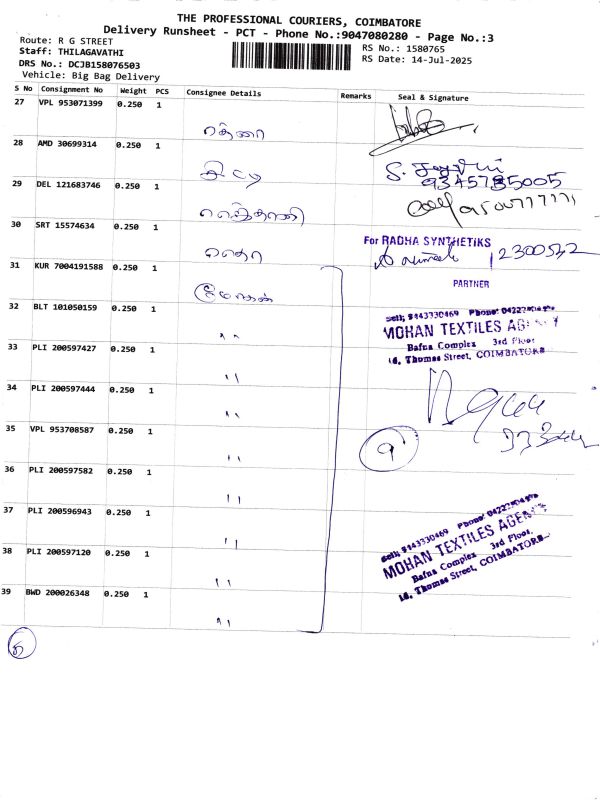 THE PROFESSIONAL COURIERS, COIMBATORE
Delivery Runsheet - PCT - Phone No.:9047080280 - Page No.:3
Route: R G STREET
RS No.: 1580765
Staff: THILAGAVATHI
RS Date: 14-Jul-2025
DRS No.: DCJB158076503
Vehicle: Big Bag Delivery
S No Consignment No Weight PCS Consignee Details Remarks Seal & Signature
27 VPL 953071399 0.250 1
28 AMD 30699314 0.250 1
29 DEL 121683746 0.250 1
30 SRT 15574634 0.250 1
For RADHA SYNTHETIKS
2300532
PARTNER
31 KUR 7004191588 0.250 1
மோகன்
32 BLT 101050159 0.250 1
"
MOHAN TEXTILES AGENCY
Bafna Complex 3rd Floor
16, Thomas Street, COIMBATORE
33 PLI 200597427 0.250 1
"
34 PLI 200597444 0.250 1
"
35 VPL 953708587 0.250 1
"
9
36 PLI 200597582 0.250 1
"
37 PLI 200596943 0.250 1
"
38 PLI 200597120 0.250 1
"
MOHAN TEXTILES AGENCY
Bafna Complex 3rd Floor,
16, Thomas Street, COIMBATORE
39 BWD 200026348 0.250 1
"